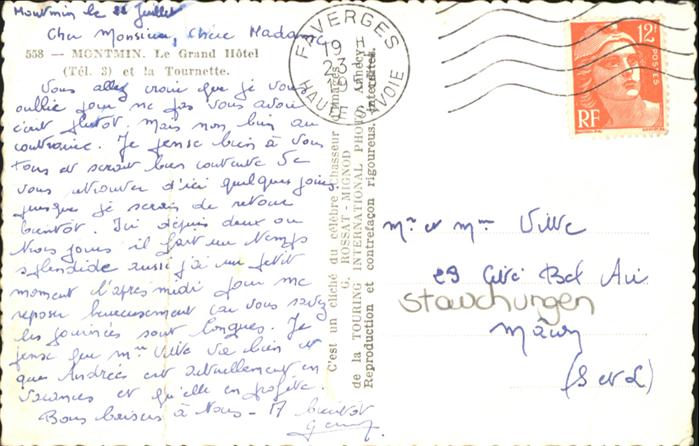 Montmin le juillet
Cher Monsieur, Chère Madame
558 — MONTMIN. Le Grand Hôtel
(Tél. 3) et la Tournette.
Vous allez croire que je vous
oublie pour ne pas vous avoir
écrit plutot. mais non bien au
contraire. Je pense bien à vous
tous et serait bien contente de
vous retrouver d'ici quelques jours
puisque je serais de retour
bientôt. Ici depuis deux ou
trois jours il fait un temps
splendide aussi j'ai un petit
moment l'après midi pour me
reposer heureusement car vous savez
les journées sont longues. Je
pense que Mme Vitte va bien et
que Andrée est actuellement en
vacances et qu'elle en profite.
Bons baisers à tous - A bientôt
C'est un cliché du célèbre Chasseur d'Images
G. ROSSAT-MIGNOD
de la TOURING INTERNATIONAL PHOTO, Annecy
Reproduction et contrefaçon rigoureus. interdites.
FAVERGES
HAUTE SAVOIE
12F
POSTES
RF
Mr et Mme Vitte
29 Cité Bel Air
Stauchungen
Mâcon
(S et L)